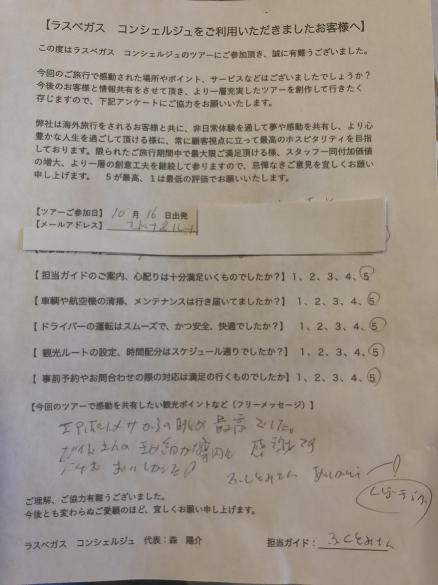 【ラスベガス　コンシェルジュをご利用いただきましたお客様へ】
この度はラスベガス　コンシェルジュのツアーにご参加頂き、誠に有難うございました。
今回のご旅行で感動された場所やポイント、サービスなどはございましたでしょうか？
今後のお客様と情報共有をさせて頂き、より一層充実したツアーを創作して行きたく
存じますので、下記アンケートにご協力をお願いいたします。
弊社は海外旅行をされるお客様と共に、非日常体験を通して夢や感動を共有し、より心
豊かな人生を過ごして頂ける様に、常に顧客視点に立って最高のホスピタリティを目指
しております。限られたご旅行期間中で最大限ご満足頂ける様、スタッフ一同付加価値
の増大、より一層の創意工夫を継続して参りますので、忌憚なきご意見を宜しくお願い
申し上げます。　5が最高、1は最低の評価でお願いいたします。
【ツアーご参加日】 10 月 16 日出発
【メールアドレス】
【 担当ガイドのご案内、心配りは十分満足いくものでしたか？】 1、2、3、4、5
【 車輌や航空機の清掃、メンテナンスは行き届いてましたか？】 1、2、3、4、5
【 ドライバーの運転はスムーズで、かつ安全、快適でしたか？】 1、2、3、4、5
【 観光ルートの設定、時間配分はスケジュール通りでしたか？】 1、2、3、4、5
【 事前予約やお問合わせの際の対応は満足の行くものでしたか】 1、2、3、4、5
【今回のツアーで感動を共有したい観光ポイントなど（フリーメッセージ）】
からの眺め 最高でした。
ガイドさんの 案内に 感謝です
おいしかった！
ふくとみさん ありがとう！
ご理解、ご協力有難うございました。
今後とも変わらぬご愛顧のほど、宜しくお願い申し上げます。
ラスベガス　コンシェルジュ　代表：森　陽介
担当ガイド： ふくとみさん